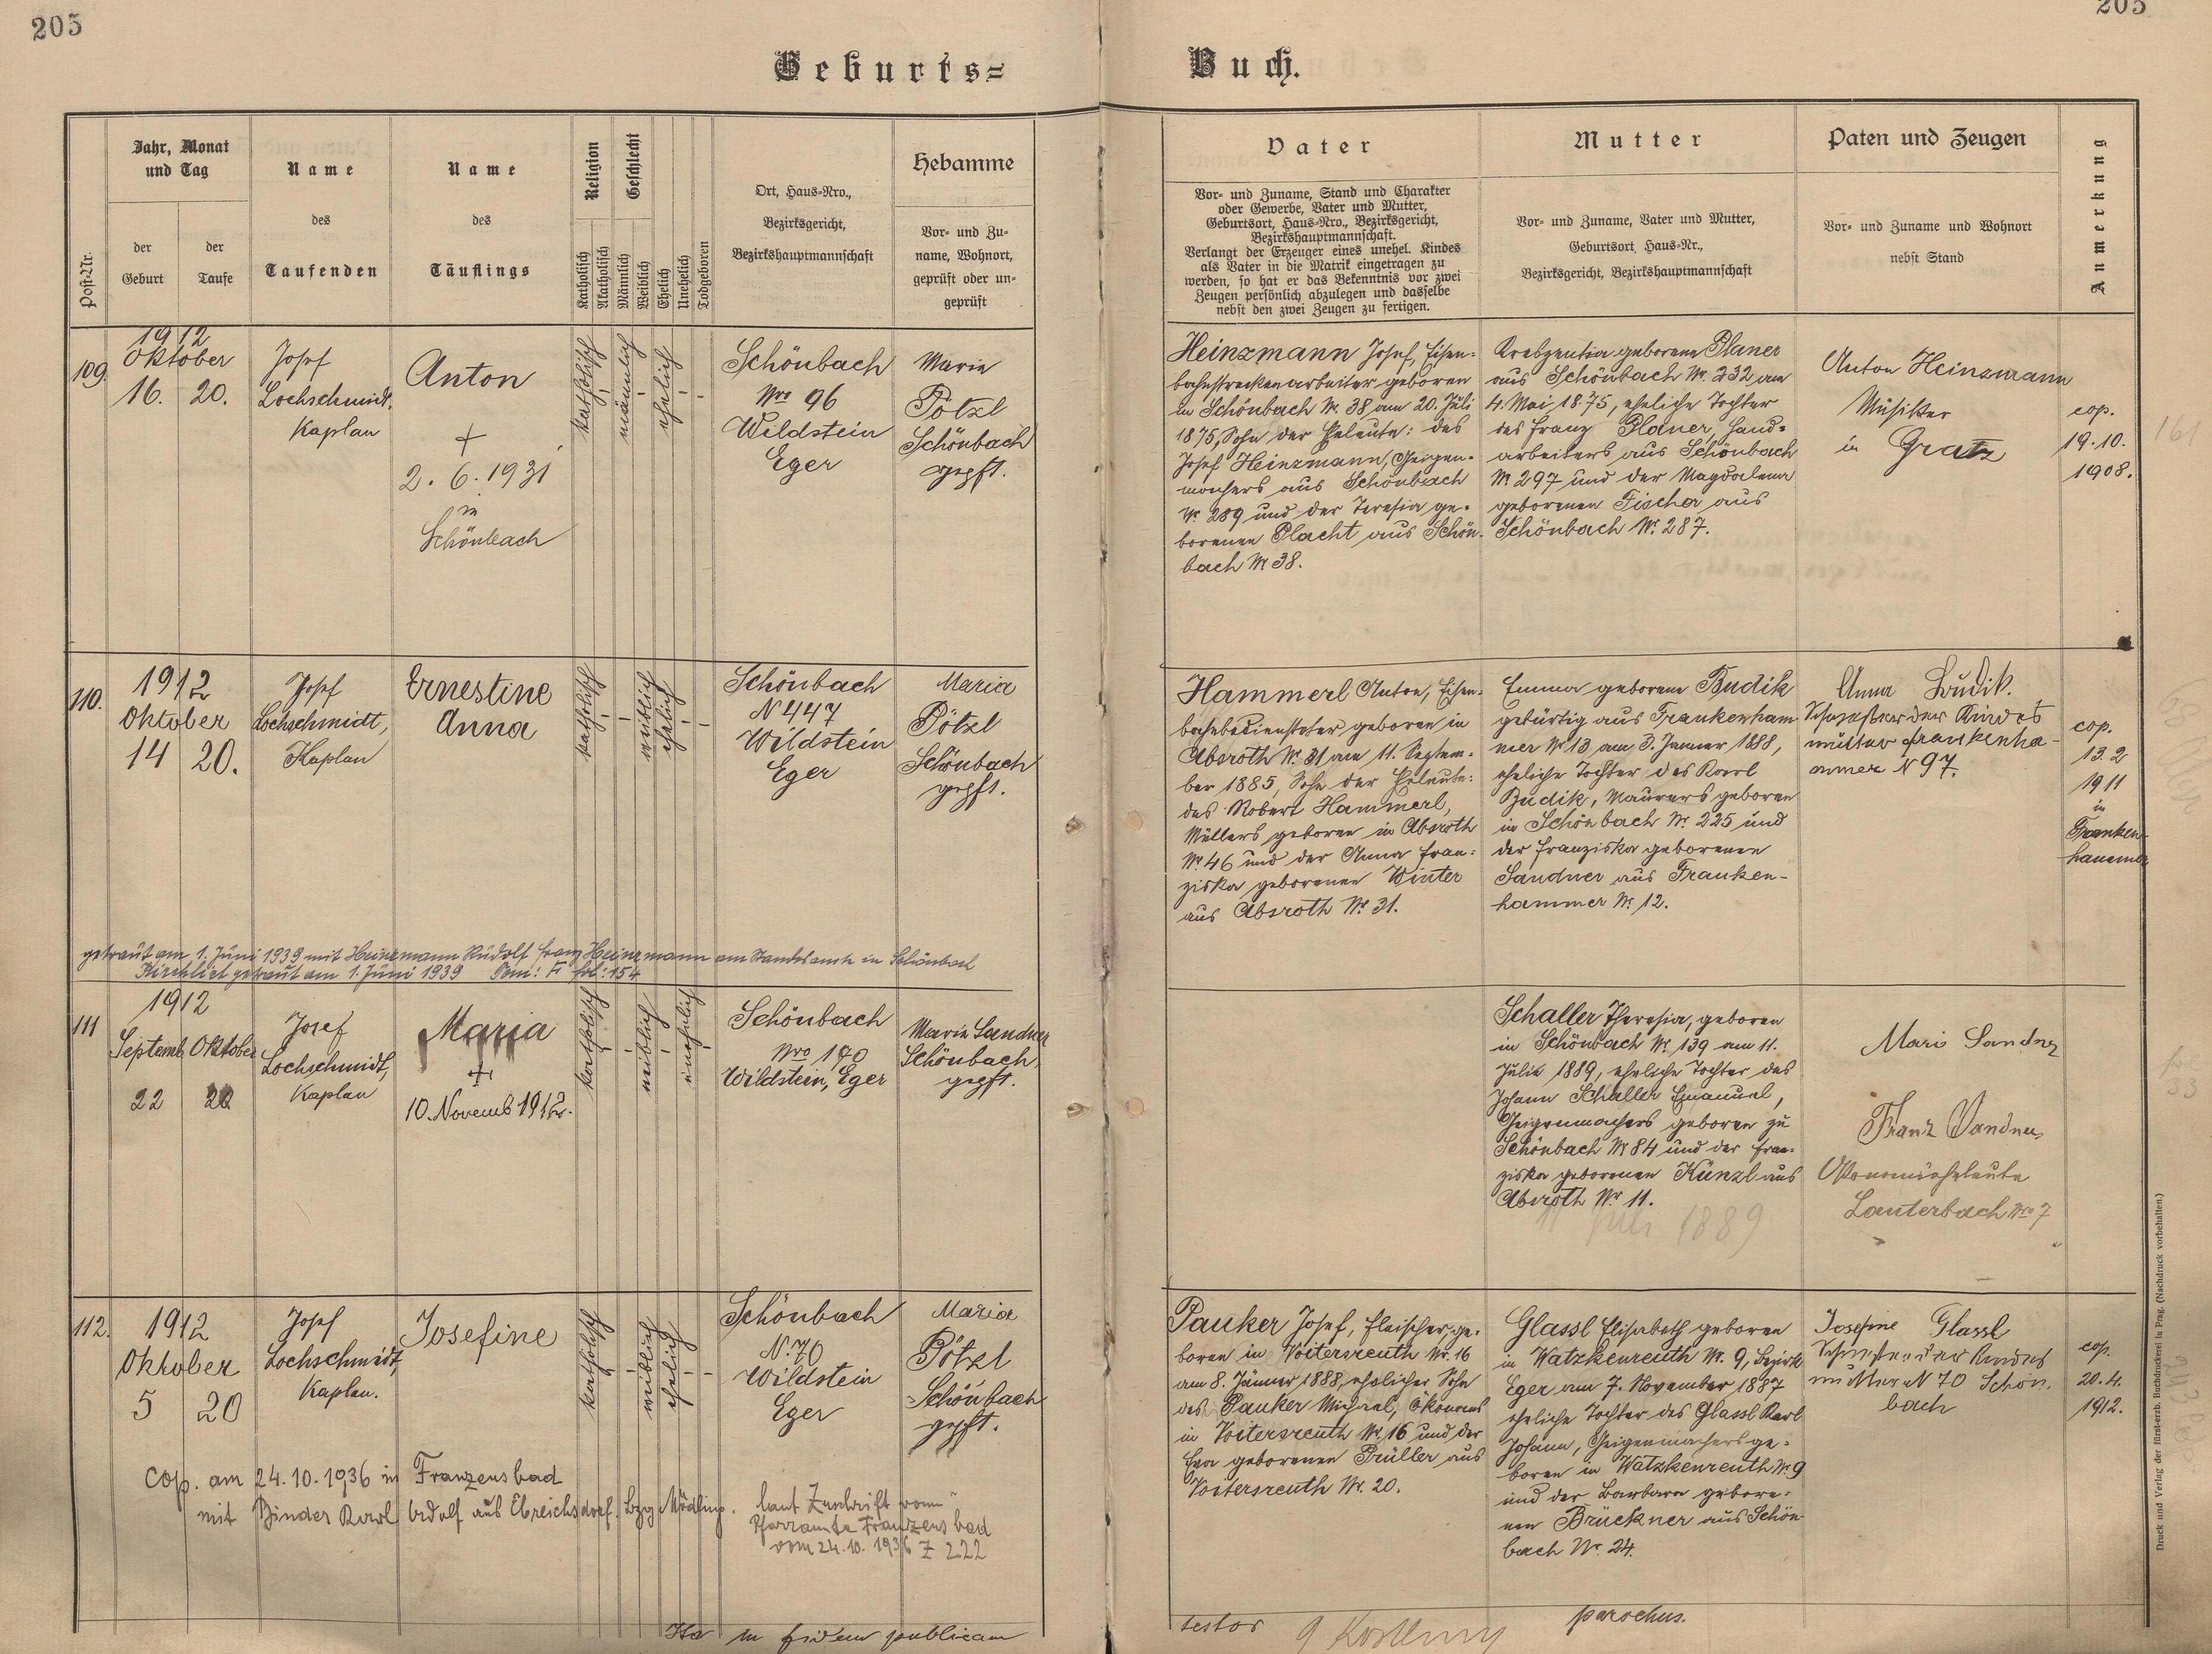 205
205
Geburts=
Buch.
Post-Nr.
Jahr, Monat
und Tag
der
Geburt
der
Taufe
Name
des
Taufenden
Name
des
Täuflings
Religion
Katholisch
Akatholisch
Geschlecht
Männlich
Weiblich
Ehelich
Unehelich
Todgeboren
Ort, Haus-Nro.,
Bezirksgericht,
Bezirkshauptmannschaft
Hebamme
Vor- und Zu-
name, Wohnort,
geprüft oder un-
geprüft
Vater
Vor- und Zuname, Stand und Charakter
oder Gewerbe, Vater und Mutter,
Geburtsort, Haus-Nro., Bezirksgericht,
Bezirkshauptmannschaft.
Verlangt der Erzeuger eines unehel. Kindes
als Vater in die Matrik eingetragen zu
werden, so hat er das Bekenntnis vor zwei
Zeugen persönlich abzulegen und dasselbe
nebst den zwei Zeugen zu fertigen.
Mutter
Vor- und Zuname, Vater und Mutter,
Geburtsort, Haus-Nr.,
Bezirksgericht, Bezirkshauptmannschaft
Paten und Zeugen
Vor- und Zuname und Wohnort
nebst Stand
Anmerkung
109.
1912
Oktober
16. 20.
Josef
Lochschmidt,
Kaplan
Anton
+
2. 6. 1931
in
Schönbach
katholisch
männlich
ehelich
Schönbach
Nro 96
Wildstein
Eger
Marie
Pötzl
Schönbach
gepft.
Heinzmann Josef, Eisen-
bahnstreckenarbeiter geboren
in Schönbach Nr. 38 am 20. Juli
1875, Sohn der Eheleute: des
Josef Heinzmann, Geigen-
machers aus Schönbach
Nr. 289 und der Theresia ge-
borenen Placht aus Schön-
bach Nr. 38.
Kreszentia geborene Planer
aus Schönbach Nr. 232 am
4. Mai 1875, eheliche Tochter
des Franz Planer, Hand-
arbeiters aus Schönbach
Nr. 297 und der Magdalena
geborenen Fischer aus
Schönbach Nr. 287.
Anton Heinzmann
Musiker
in Gratz
cop.
19.10.
1908.
161
110.
1912
Oktober
14 20.
Josef
Lochschmidt,
Kaplan
Ernestine
Anna
katholisch
weiblich
ehelich
Schönbach
N 447
Wildstein
Eger
Maria
Pötzl
Schönbach
gepft.
Hammerl Anton, Eisen-
bahnbediensteter geboren in
Absroth Nr. 31 am 11. Septem-
ber 1885, Sohn der Eheleute:
des Robert Hammerl,
Müllers geboren in Absroth
Nr. 46 und der Anna Fran-
ziska geborenen Winter
aus Absroth Nr. 31.
Emma geborene Budik
gebürtig aus Frankenham
mer Nr. 13 am 3. Jänner 1888,
eheliche Tochter des Karl
Budik, Maurers geboren
in Schönbach Nr. 225 und
der Franziska geborenen
Sandner aus Franken-
hammer Nr. 12.
Anna Budik.
Schwester der Kindes
mutter Frankenha-
ammer N 97.
cop.
13.2
1911
in
Franken-
hammer
getraut am 1. Juni 1939 mit Heinzmann Rudolf Franz Heinzmann am Standesamte in Schönbach
Kirchlich getraut am 1. Juni 1939 Tom: F fol: 154
111
1912
Septemb Oktober
22 20
Josef
Lochschmidt,
Kaplan
Maria
+
10. Novemb 1912.
katholisch
weiblich
unehelich
Schönbach
Nro 170
Wildstein, Eger
Marie Sandner
Schönbach,
gepft.
Schaller Theresia, geboren
in Schönbach Nr. 139 am 11.
Juli 1889, eheliche Tochter des
Johann Schaller Emanuel,
Geigenmachers geboren zu
Schönbach Nr. 84 und der Fran-
ziska geborenen Künzl aus
Absroth Nr. 11.
11 Juli 1889
Mari Sandner
Franz Sandner
Ökonomieeheleute
Lauterbach Nro 7
33
112.
1912
Oktober
5 20
Josef
Lochschmidt,
Kaplan.
Josefine
katholisch
weiblich
ehelich
Schönbach
N. 70
Wildstein
Eger
Maria
Pötzl
Schönbach
gepft.
Pauker Josef, Fleischer, ge-
boren in Voitersreuth Nr. 16
am 8. Jänner 1888, ehelicher Sohn
des Pauker Michael, Ökonoms
in Voitersreuth Nr. 16 und der
Eva geborenen Prüller aus
Voitersreuth Nr. 20.
Glassl Elisabeth geboren
in Watzkenreuth Nr. 9, Bezirk
Eger am 7. November 1887
eheliche Tochter des Glassl Karl
Johann, Geigenmachers ge-
boren in Watzkenreuth Nr. 9
und der Barbara gebore-
nen Brückner aus Schön-
bach Nr. 24.
Josefine Glassl
Schwester der Kindes
mutter N 70 Schön.
bach
cop.
20.4.
1912.
Cop. am 24.10.1936 in Franzensbad
mit Binder Karl Adolf aus Ebreichsdorf, Bzg Mödling.
laut Zuschrift vom
Pfarramte Franzensbad
vom 24.10.1936 Z 222
Ita in fidem publicam
testor
parochus.
Druck und Verlag der fürst-erzb. Buchdruckerei in Prag. (Nachdruck vorbehalten.)